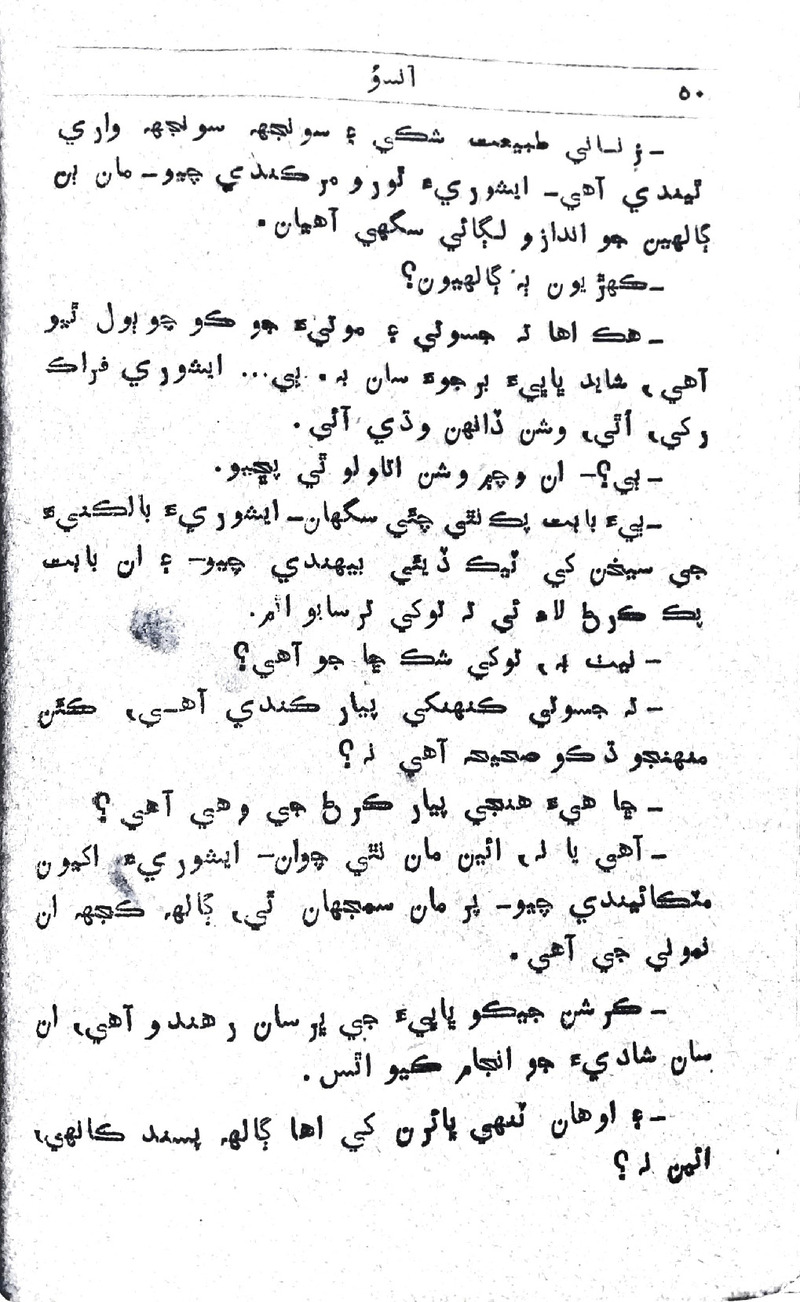 ۵۰
آنسؤ
-زناني طبيعت شڪي ۽ سونجهہ سونجهہ واري
ٿيندي آهي- ايشوريءَ ٿورو مرڪندي چيو- مان ٻن
ڳالهين جو اندازو لڳائي سگهي آهيان.
-ڪهڙيون ٻہ ڳالهيون؟
-هڪ اها تہ جسوتي ۽ موتيءَ جو ڪو چوٻول ٿيو
آهي، شايد ڀاڀيءَ برجوءَ سان بہ. ٻي... ايشوري فراڪ
رکي، اُٿي، وشن ڏانهن وڌي آئي.
-ٻي؟- ان وچ۾ وشن اتاولو ٿي پڇيو.
-ٻيءَ بابت پڪ نٿي چئي سگهان- ايشوريءَ بالڪنيءَ
جي سيخن کي ٽيڪ ڏيئي بيهندي چيو- ۽ ان بابت
پڪ ڪرڻ لاءِ ئي تہ توکي ترسايو اٿم.
- ڀيٽ بہ، توکي شڪ ڇا جو آهي؟
-تہ جسوتي ڪنهنکي پيار ڪندي آهي، ڪٿن
منهنجو ڏڪو صحيح آهي نہ؟
- ڇا هيءَ هنجي پيار ڪرڻ جي وهي آهي؟
-آهي يا نہ، ائين مان نٿي چوان- ايشوريءَ اکيون
مٽڪائيندي چيو- پر مان سمجهان ٿي، ڳالهہ ڪجهہ ان
نموني جي آهي.
-ڪرشن جيڪو ڀاڀيءَ جي ڀرسان رهندو آهي، ان
سان شاديءَ جو انجام ڪيو اٿس.
-۽ اوهان ٽنهي ڀائرن کي اها ڳالهہ پسند ڪانهي،
ائين نہ؟